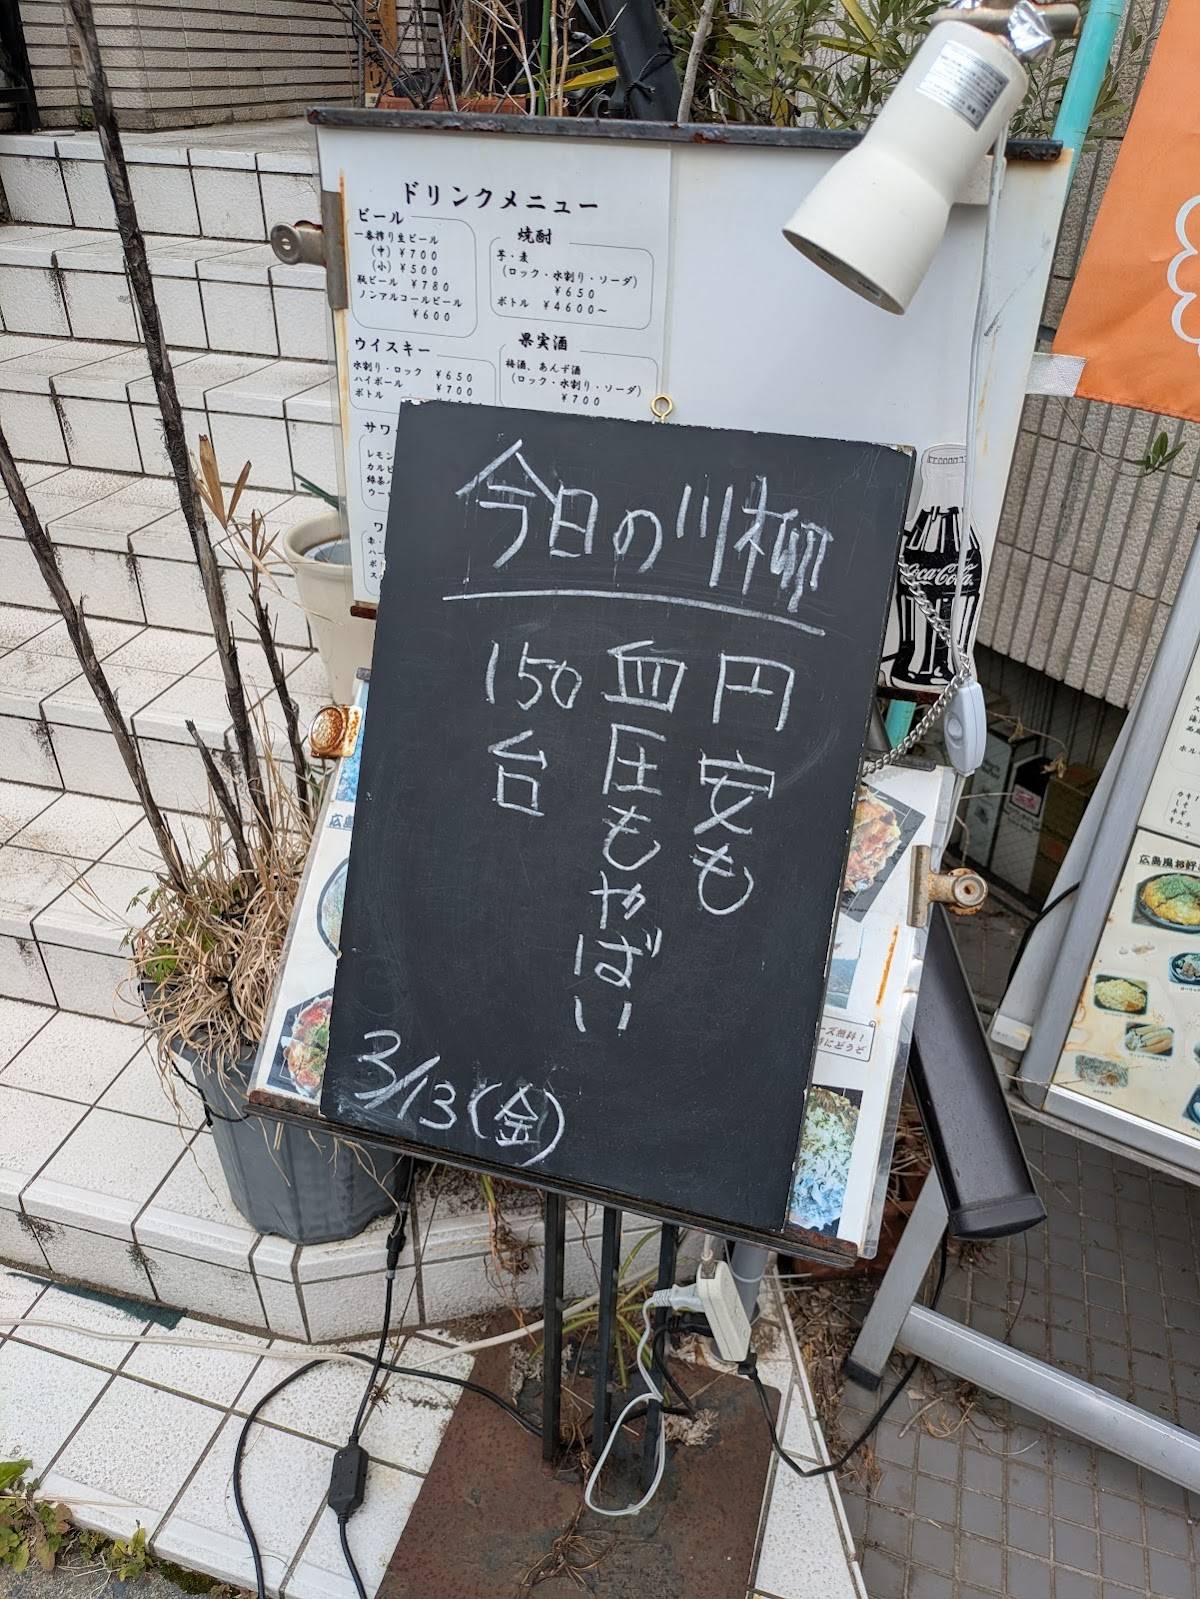 ドリンクメニュー
ビール
一番搾り生ビール
(中) ¥700
(小) ¥500
瓶ビール ¥780
ノンアルコールビール
¥600
焼酎
芋・麦
(ロック・水割り・ソーダ)
¥650
ボトル ¥4600〜
ウイスキー
水割り・ロック ¥650
ハイボール ¥700
ボトル
果実酒
梅酒、あんず酒
(ロック・水割り・ソーダ)
¥700
サワ
レモン
カルピ
緑茶
ウー
ワ
Coca-Cola
今日の川柳
円安も
血圧もやばい
150台
3/13(金)
広島
ーズ無料!
にどうぞ
広島風お好